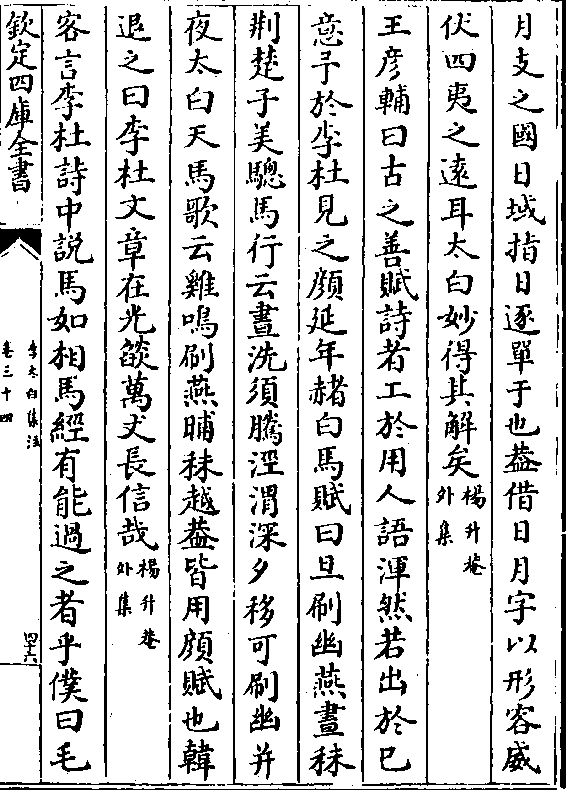 月支之國日域指日逐單于也葢借日月字以形容威
伏四夷之遠耳太白妙得其解矣楊升菴外集
王彦輔曰古之善賦詩者工於用人語渾然若出於己
意予於李杜見之顔延年赭白馬賦曰旦刷幽燕晝秣
荆楚子美驄馬行云晝洗須騰涇渭深夕移可刷幽并
夜太白天馬歌云雞鳴刷燕晡秣越葢皆用顔賦也韓
退之曰李杜文章在光燄萬丈長信哉楊升菴外集
容言李杜詩中說馬如相馬經有能過之者乎僕曰毛
欽定四庫全書
李太白集注
卷三十四
四六